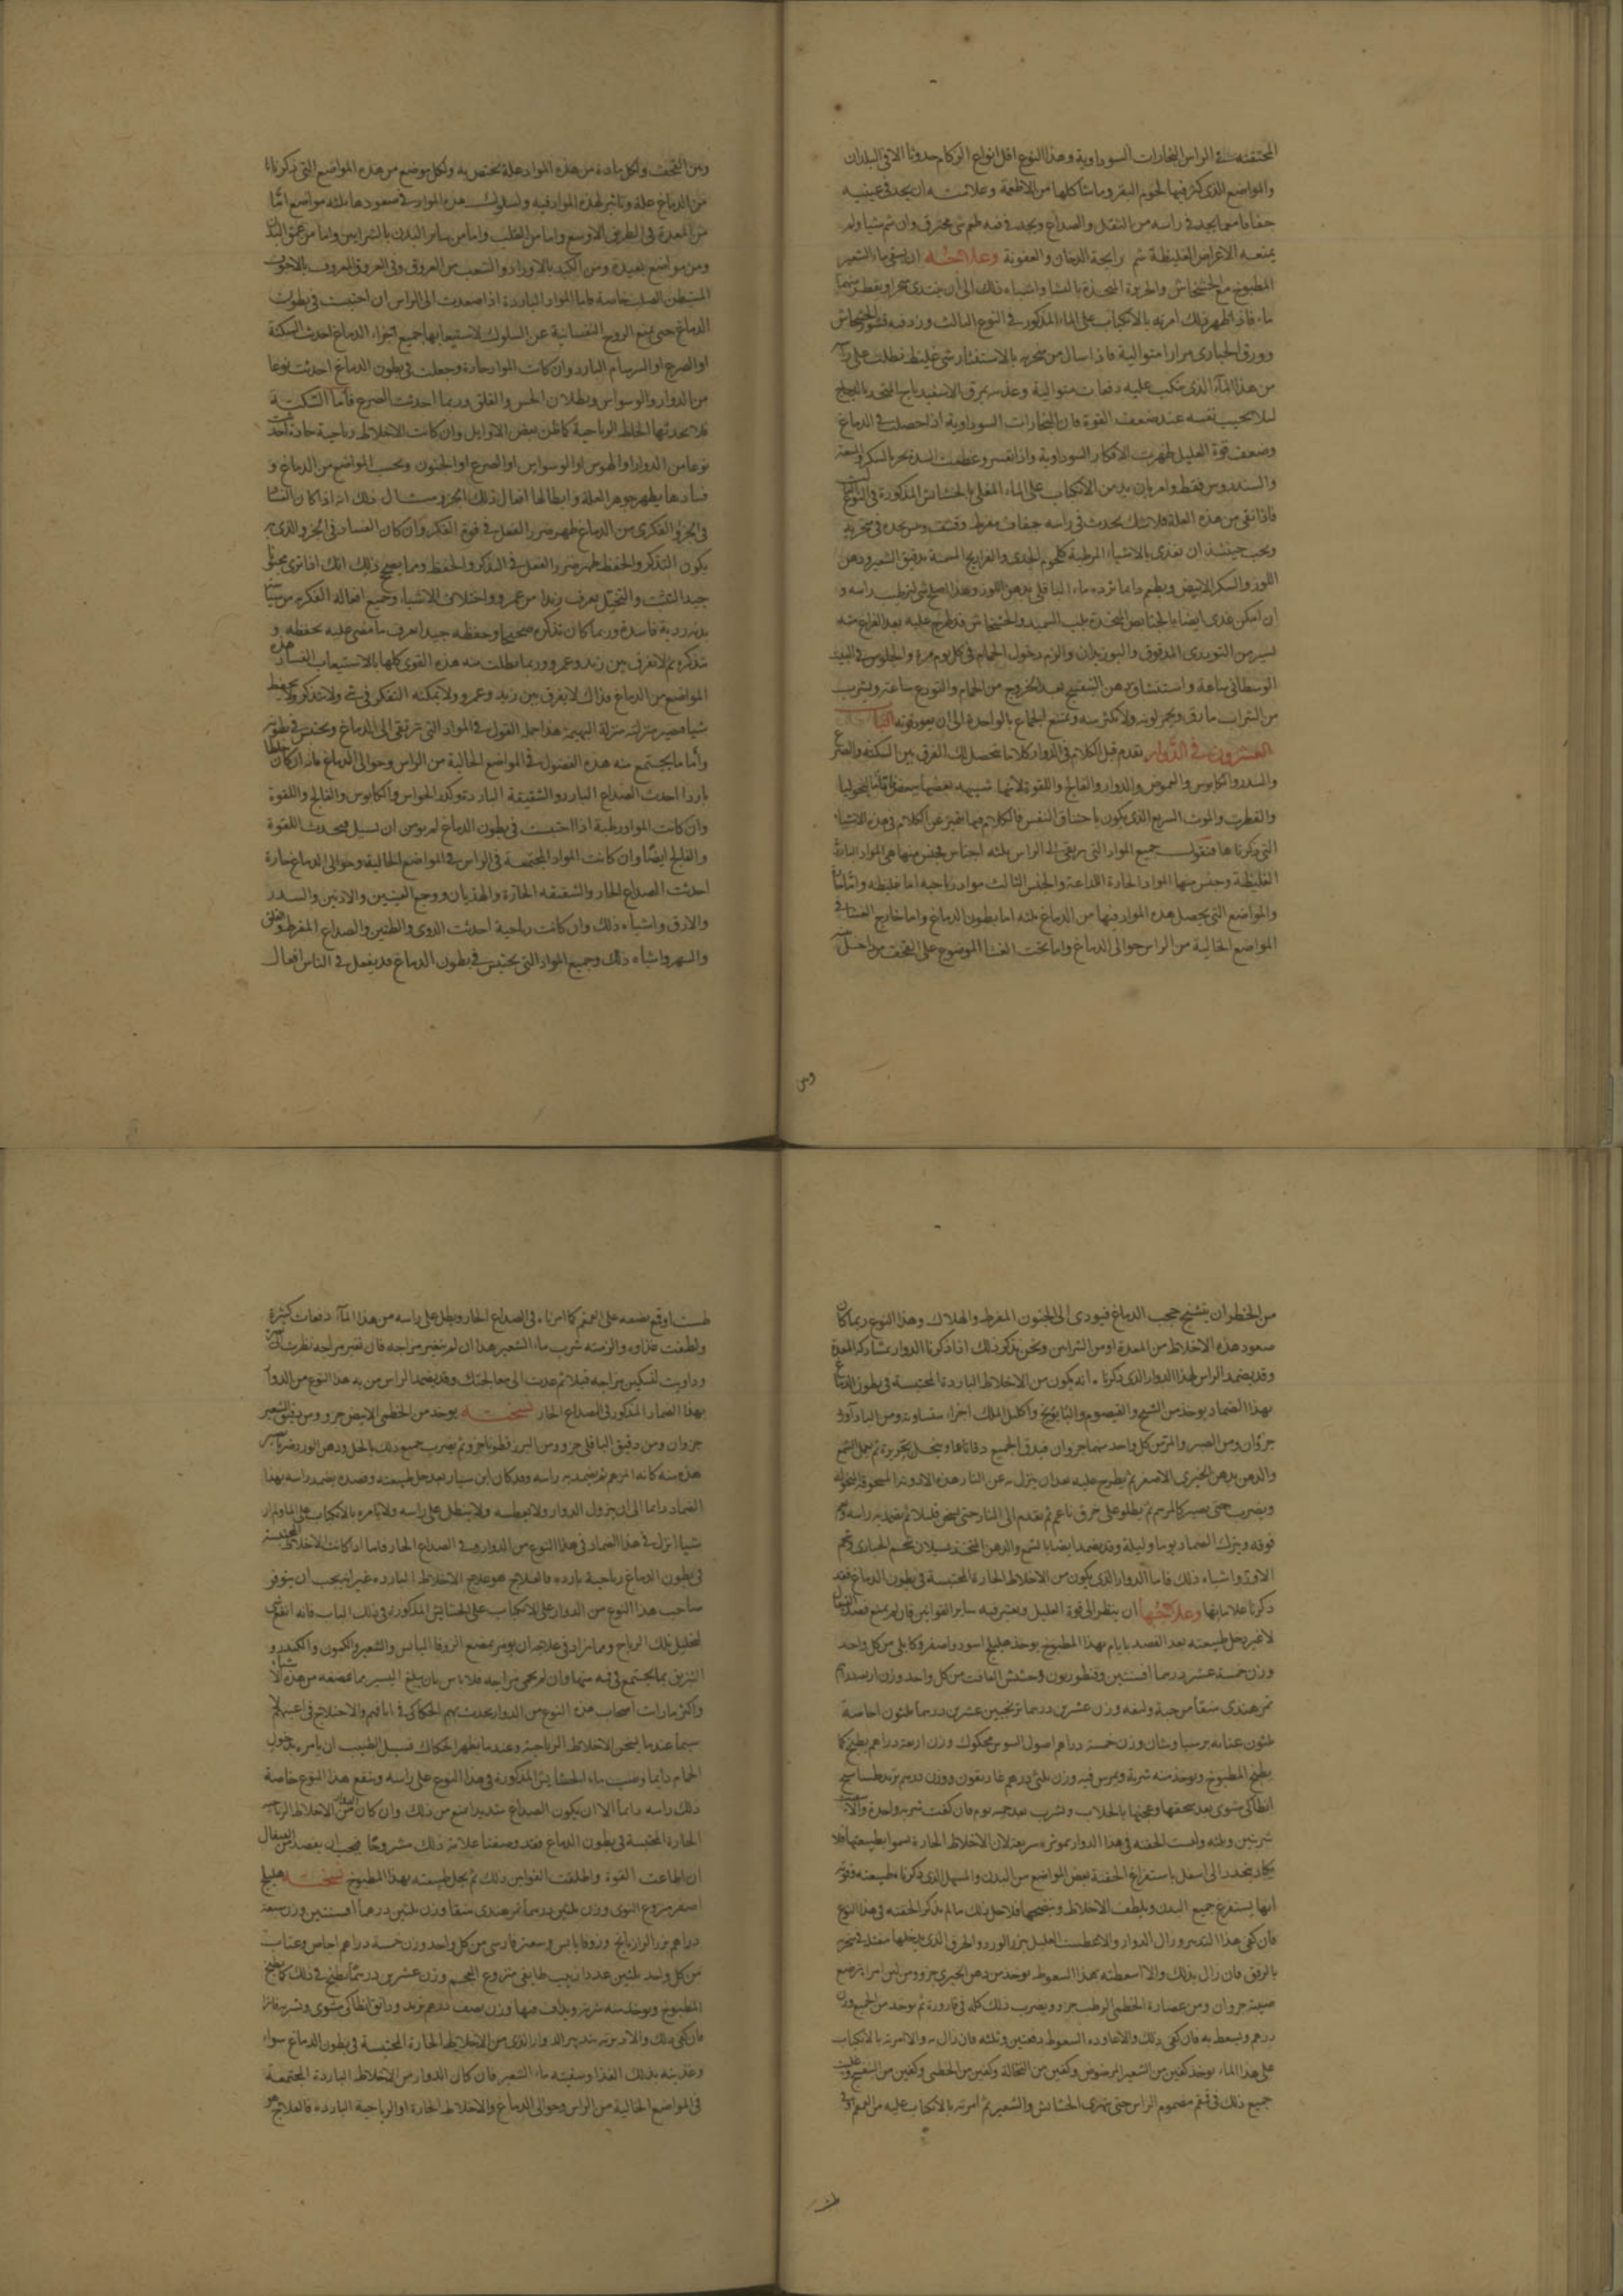 المحتقنة في الراس البخارات السوداوية وهذا النوع اقل انواع الزكام حدوثا الا في البلدان
والمواضع الذي كثر فيها لحوم البقر وما شاكلها من الاطعمة وعلامته ان يجد في عينيه
جفافا مع ما يجد في راسه من الثقل والصداع ويجد في فمه طعم شي محترق وان شم شيا ولم
يمنعه الاعراض الغليظة شم رايحة الدخان والعفونة وعلاجه ان يسقى ماء الشعير
المطبوخ مع الخشخاش والحريرة المتخذة بالنشا واشباه ذلك الى ان
ماء فاذا ظهر ذلك امرته بالانكباب على الماء المذكور في النوع الثالث وزد فيه قشور الخشخاش
وورق الخبازى مرارا متوالية فاذا سال من منخريه بالاستنثار شي غليظ نطلت على راسه
من هذا الماء الذي ينكب عليه دفعات متوالية وغذيته بمرق الاسفيدباج المتخذ بالدجاج
لئلا يخيب نفسه عند ضعف القوة فان البخارات السوداوية اذا حصلت في الدماغ
وضعف قوة العليل ظهرت الافكار السوداوية واذا
والسندروس فقط وامر بان يدمن الانكباب على الماء المغلي بالحشايش المذكورة في النوع الثالث
فاذا نقي من هذه العلة فلا شك يحدث في راسه جفاف مفرط
ويجب حينئذ ان يغذى بالاشياء المرطبة كلحوم الجدي والفراريج المسمنة بدقيق الشعير ودهن
اللوز والسكر الابيض ويطعم دايما ثرده ماء الباقلى بدهن اللوز وهذا اصلح شي لترطيب راسه و
ان امكن غذي ايضا بالخبايص المتخذة بلب السميد والخشخاش قد طرح عليه بعد الفراغ منه
يسير من التودري المدقوق والبوزيدان والزم دخول الحمام في كل يوم مرة والجلوس في البيت
الوسطاني ساعة واستنشاق دهن البنفسج بعد الخروج من الحمام والتودع ساعة ويشرب
من الشراب ما رق ولا يكثر منه ويمتنع الجماع بالواحدة الى ان يعود قوته الباب
العشرون في الدوار تقدم قبل الكلام في الدوار كلاما يتحصل لك الفرق بين السكتة والصرع
والسدر والكابوس والدوار والفالج واللقوة لانها شبيهة بعضها ببعض
والقطرب والموت السريع الذي يكون باختناق النفس فالكلام فيها متميز عن الكلام في هذه الاشياء
التي ذكرناها فنقول جميع المواد التي ترتقي الى الراس ثلثة اجناس فجنس منها هي المواد الباردة
الغليظة وجنس منها المواد الحارة اللذاعة والجنس الثالث مواد رياحية اما غليظة واما
والمواضع التي يحصل هذه المواد فيها من الدماغ ثلثة اما بطون الدماغ واما خارج الغشا في
المواضع الخالية من الراس حوالى الدماغ واما تحت الغشا الموضوع على القحف من داخل
ومن
ومن القحف ولكل مادة من هذه المواد علة يختص به ولكل موضع من هذه المواضع التي ذكرناها
من الدماغ علة وتاثير لهذه المواد فيه ولسلوك هذه المواد في صعودها ثلثة مواضع اما
من المعدة في الطريق الاوسع واما من القلب واما من ساير البدن بالشرايين واما من عمق البدن
ومن مواضع بعيدة ومن الكبد بالاوراد والشعب من العروق وفي العروق المعروف بالاجوف
المتبطن الصلب خاصة فاما المواد الباردة اذا صعدت الى الراس ان احتبست في بطون
الدماغ حتى يمنع الروح النفسانية عن السلوك لاستيعابها جميع اجزاء الدماغ احدثت السكتة
او الصرع او السرسام البارد وان كانت المواد حارة وجعلت في بطون الدماغ احدثت نوعا
من الدوار والوسواس وبطلان الحس والقلق وربما احدثت الصرع فاما السكتة
فلا يحدثها الخلط الرياحية كما ظن بعض الاوايل وان كانت الاخلاط رياحية حادة احدثت
نوعا من الدوار او الهوس او الوسواس او الصرع او الجنون وبحسب المواضع من الدماغ و
فسادها يظهر جوهر العلة وابطالها افعال ذلك الجزو مثال ذلك انه اذا كان الفساد
في الجزو الفكري من الدماغ ظهر ضرر الفعل في قوة الفكر وان كان الفساد في الجزو الذي به
يكون التذكر والحفظ ظهر ضرر الفعل في التذكر والحفظ ومما يصحح ذلك انك اذا ترى
جيد التثبت والتخيل يعرف زيدا من عمرو واختلاف الاشياء وجميع افعاله الفكرية
ردية فاسدة وربما كان تذكره صحيحا وحفظه جيدا يعرف ما مضى عليه بحفظه و
تذكره ثم لا يفرق بين زيد وعمرو وربما بطلت منه هذه القوى كلها بالاستيعاب الفساد هذه
المواضع من الدماغ فذاك لا يفرق بين زيد وعمرو ولا يمكنه التفكر في شي ولا يتذكر ولا يحفظ
شيا فيصير منزلته منزلة البهيمة هذا جملة القول في المواد التي ترتقي الى الدماغ ويحتبس في بطونه
واما ما يجتمع منه هذه الفضول في المواضع الخالية من الراس وحوالى الدماغ فانه ان كان خلطا
باردا احدث الصداع البارد والشقيقة الباردة وكدر الحواس والكابوس والفالج واللقوة
وان كانت المواد رطبة اذا احتبست في بطون الدماغ لم يومن ان يسيل فيحدث اللقوة
والفالج ايضا وان كانت المواد المجتمعة في الراس في المواضع الخالية وحوالى الدماغ حارة
احدثت الصداع الحار والشقيقة الحارة والهذيان ووجع العينين والاذنين والسدر
والارق واشباه ذلك وان كانت رياحية احدثت الدوي والطنين والصداع المفرط والقلق
والسهر واشباه ذلك وجميع المواد التي يحتبس في بطون الدماغ قد يفعل في الناس افعال
من الخطر ان يتشنج حجب الدماغ فيودي الى الجنون المفرط والهلاك وهذا النوع ربما كان
صعود هذه الاخلاط من المعدة او من الشرايين ونحن نذكر ذلك اذا ذكرنا الدوار بمشاركة المعدة
وقد يضمد الراس لهذا الدوار الذي ذكرناه انه يكون من الاخلاط الباردة المحتبسة في بطون الدماغ
بهذا الضماد يوخذ من الشيح والقيصوم والبابونج واكليل الملك اجزاء متساوية ومن
جزوان ومن الصبر والمر من كل واحد منهما جزوان فيدق الجميع دقا ناعما وينخل بحريرة ثم يعمل الشمع
والدهن بدهن الخيري الاصفر ثم يطرح عليه بعد ان ينزل به عن النار هذه الادوية المسحوقة المنخولة
ويضرب حتى يصير كالمرهم ثم يطلى على خرق ناعم ثم يقدم الى النار حتى يسخن قليلا ثم يضمد به راسه
فوقه ويترك الضماد يوما وليلة وقد يضمد ايضا بالشمع والدهن المتخذ
الاوز واشباه ذلك فاما الدوار الذي يكون من الاخلاط الحارة المحتبسة في بطون الدماغ فقد
ذكرنا علاماتها وعلاجها ان ينظر الى قوة العليل ويعتبر فيه ساير القوانين فان لم يمنع فصدت القيفال
لا غير وحل طبيعته بعد الفصد بايام بهذا المطبوخ يوخذ هليلج اسود واصفر وكابلي من كل واحد
وزن خمسة عشر درهما افسنتين وقنطوريون وحشيش الغافت من كل واحد وزن اربعة دراهم
تمر هندي منقا من حبه وليفه وزن عشرين درهما ترنجبين عشرين درهما ثلثون اجاصة
ثلثون عنابة وزن خمسة دراهم اصول السوس محكوك وزن اربعة دراهم يطبخ كما
يطبخ المطبوخ ويوخذ منه شربة ويمرس فيه وزن ثلثي درهم غاريقون ووزن درهم تربد
انطاكي مشوي بعد سحقها وعجنها بالجلاب ويشرب بعد
شربتين وثلثة وليست الحقنة في هذا الدوار بموثرة سريعة لان الاخلاط الحارة تسمو بطبيعتها فلا
يكاد ينحدر الى اسفل باستفراغ الحقنة بعض المواضع من البدن والمسهل الذي ذكرناه
انها يستفرغ جميع البدن ويلطف الاخلاط وينضجها فلاجل ذلك ما لم نذكر الحقنة في هذا النوع
فان كفى هذا التدبير وزال الدوار والا عطست العليل ببزر الورد
بالرفق فان زال بذلك والا اسعطته بهذا السعوط يوخذ من دهن الخيري جزو ومن لبن امراة ترضع
صبية جزوان ومن عصارة الخطمي الرطب جزو ويضرب ذلك كله في قارورة ثم يوخذ من الجميع وزن
درهم ويسعط به فان كفى ذلك والا عاوده السعوط دفعتين وثلثة فان زال به والا امرته بالانكباب
على هذا الماء يوخذ كفين من الشعير المرضوض وكفين من النخالة وكفين من الخطمي وكفين من البنفسج
جميع ذلك في قمقم مضموم الراس حتى يتهرى الحشايش والشعير ثم امرته بالانكباب عليه من القمقم او في
طست
طست اوقع بضعه على القمقم كما امرناه في الصداع الحار ويطل على راسه من هذا الماء دفعات كثيرة
ولطفت غذاوه والزمته شرب ماء الشعير هذا ان لم يتغير مزاجه فان تغير مزاجه نظرت
وداويت لتسكين مزاجه قبلا ثم عدت الى معالجتك وقد يضمد الراس من به هذا النوع من الدوار
بهذا الضماد المذكور في الصداع الحار نسخته يوخذ من الخطمي الابيض جزو ومن دقيق الشعير
جزوان ومن دقيق الباقلى جزو ومن البزر قطونا جزو ثم يضرب جميع ذلك بالخل ودهن الورد
هذه منه كانه المرهم ثم يضمد به راسه وقد كان ابن سيار بعد حل طبيعته وفصده يضمد راسه بهذا
الضماد دايما الى ان يزول الدوار ولا يعطسه ولا ينطل على راسه ولا يامره بالانكباب على الماء ولم ار
شيا انزل في هذا الضماد في هذا النوع من الدوار وفي الصداع الحار فاما اذا كانت الاخلاط المحتبسة
في بطون الدماغ رياحية باردة فالعلاج هو علاج الاخلاط الباردة غير انه يجب ان يتوفر
صاحب هذا النوع من الدوار على الانكباب على الحشايش المذكورة في ذلك الباب فانه انفع شي
لتحليل تلك الرياح ومما يزاد في علاجه ان يومر بمضغ الزوفا اليابس والشعير والكمون والكندر و
التبزق بما يجتمع في فيه منها وان لم يحمى مزاجه فلا باس بان يبلع اليسير مما يمضغه من هذه الاشياء
واكثر ما رايت اصحاب هذه النوع من الدوار يحدث بهم الحكاك في انافهم والاختلاج في اعينهم لا
سيما عندما يسخن الاخلاط الرياحية وعندما يظهر الحكاك فسبيل الطبيب ان يامره بدخول
الحمام دايما وصب ماء الحشايش المذكورة في هذا النوع على راسه وينفع هذا النوع خاصة
ذلك راسه دايما الا ان يكون الصداع شديدا منع من ذلك وان كان الدوار من الاخلاط الرياحية
الحارة المحتبسة في بطون الدماغ فقد وصفنا علامة ذلك مشروحا فيجب ان يفصد من القيفال
ان اطاعت القوة واطلقت القوانين ذلك ثم يحل طبيعته بهذا المطبوخ نسخته هليلج
اصفر منزوع النوى وزن ثلثين درهما تمر هندي منقا وزن ثلثين درهما افسنتين وزن سبعة
دراهم بزر الرازيانج وزوفا يابس وسعتر فارسي من كل واحد وزن خمسة دراهم اجاص وعناب
من كل واحد ثلثين عددا زبيب طايفي منزوع العجم وزن عشرين درهما يطبخ ذلك كما يطبخ
المطبوخ ويوخذ منه شربة ويداف فيها وزن نصف درهم تربد ودانق انطاكي مشوي وشربه فاترا
فان كفى ذلك والا دبرته بتدبير الدوار الذي من الاخلاط الحارة المحتبسة في بطون الدماغ سواء
وغذيته بذلك الغذا وسقيته ماء الشعير فان كان الدوار من الاخلاط الباردة المجتمعة
في المواضع الخالية من الراس وحوالى الدماغ والاخلاط الحارة او الرياحية الباردة فالعلاج هو